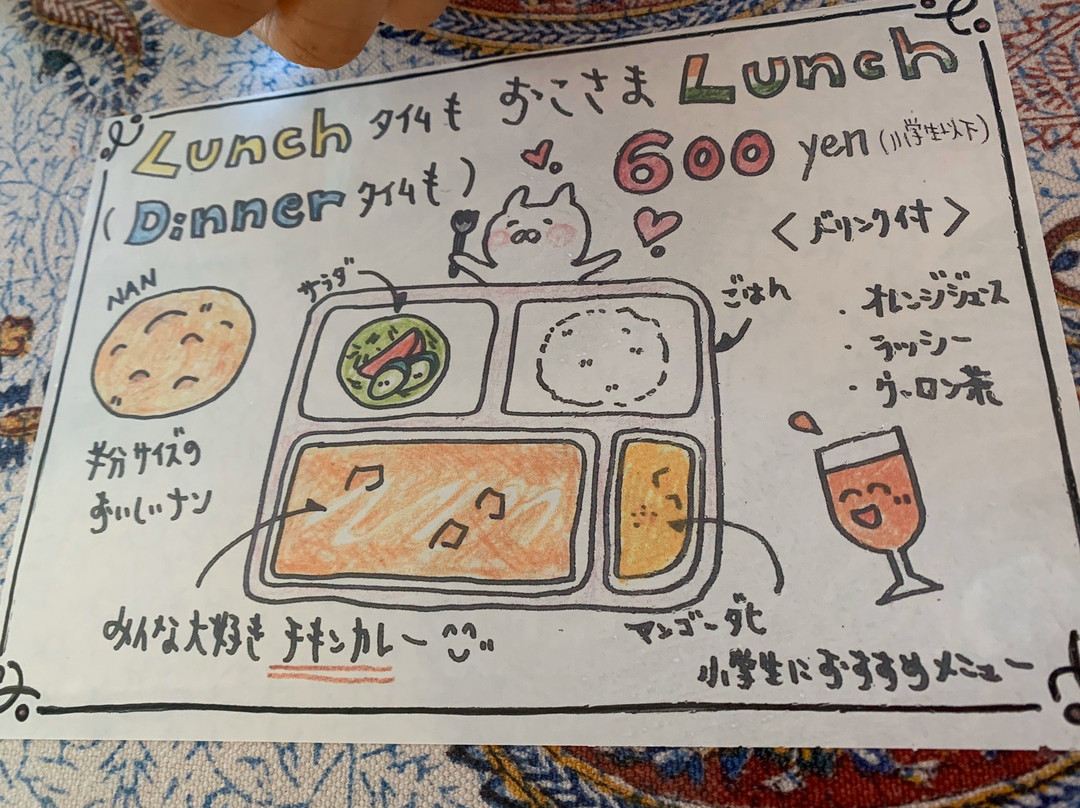 Lunch タイムも おこさま Lunch
(Dinner タイムも)
600 yen (小学生以下)
<ドリンク付>
・オレンジジュース
・ラッシー
・ウーロン茶
NAN
サラダ
ごはん
半分サイズの
おいしいナン
みんな大好き チキンカレー
マンゴーダヒ
小学生におすすめメニュー